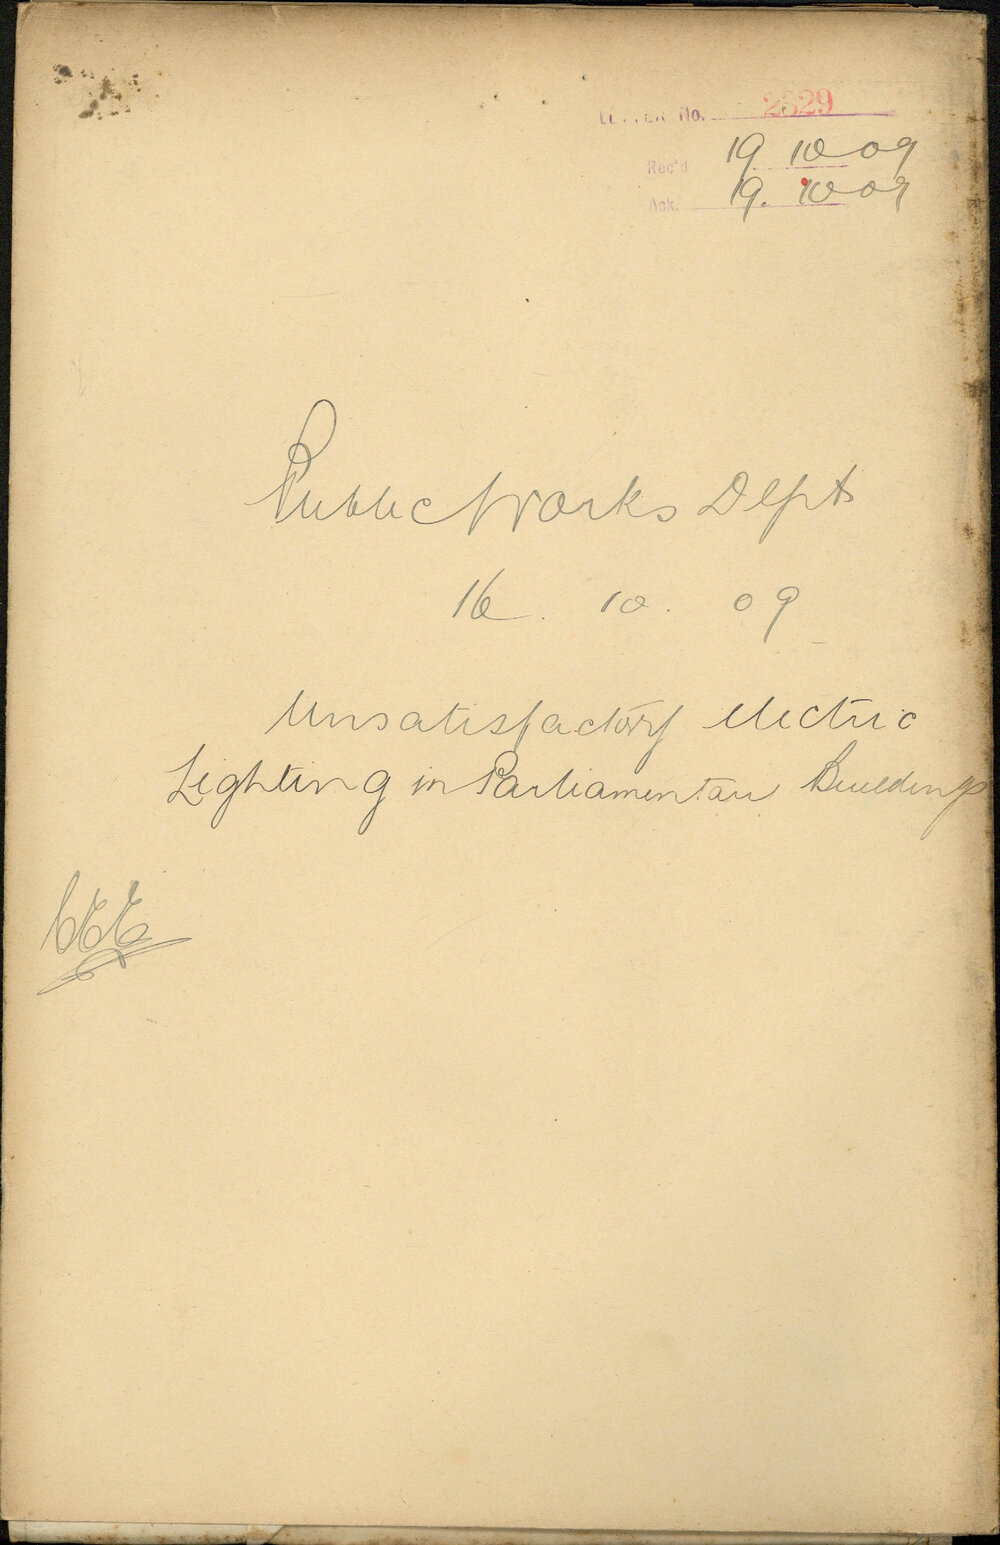 LETTER No. 2529
Rec'd 19. 10 09
Ack. 19. 10 09
Public Works Dept
16. 10. 09
Unsatisfactory electric
Lighting in Parliamentary Buildings